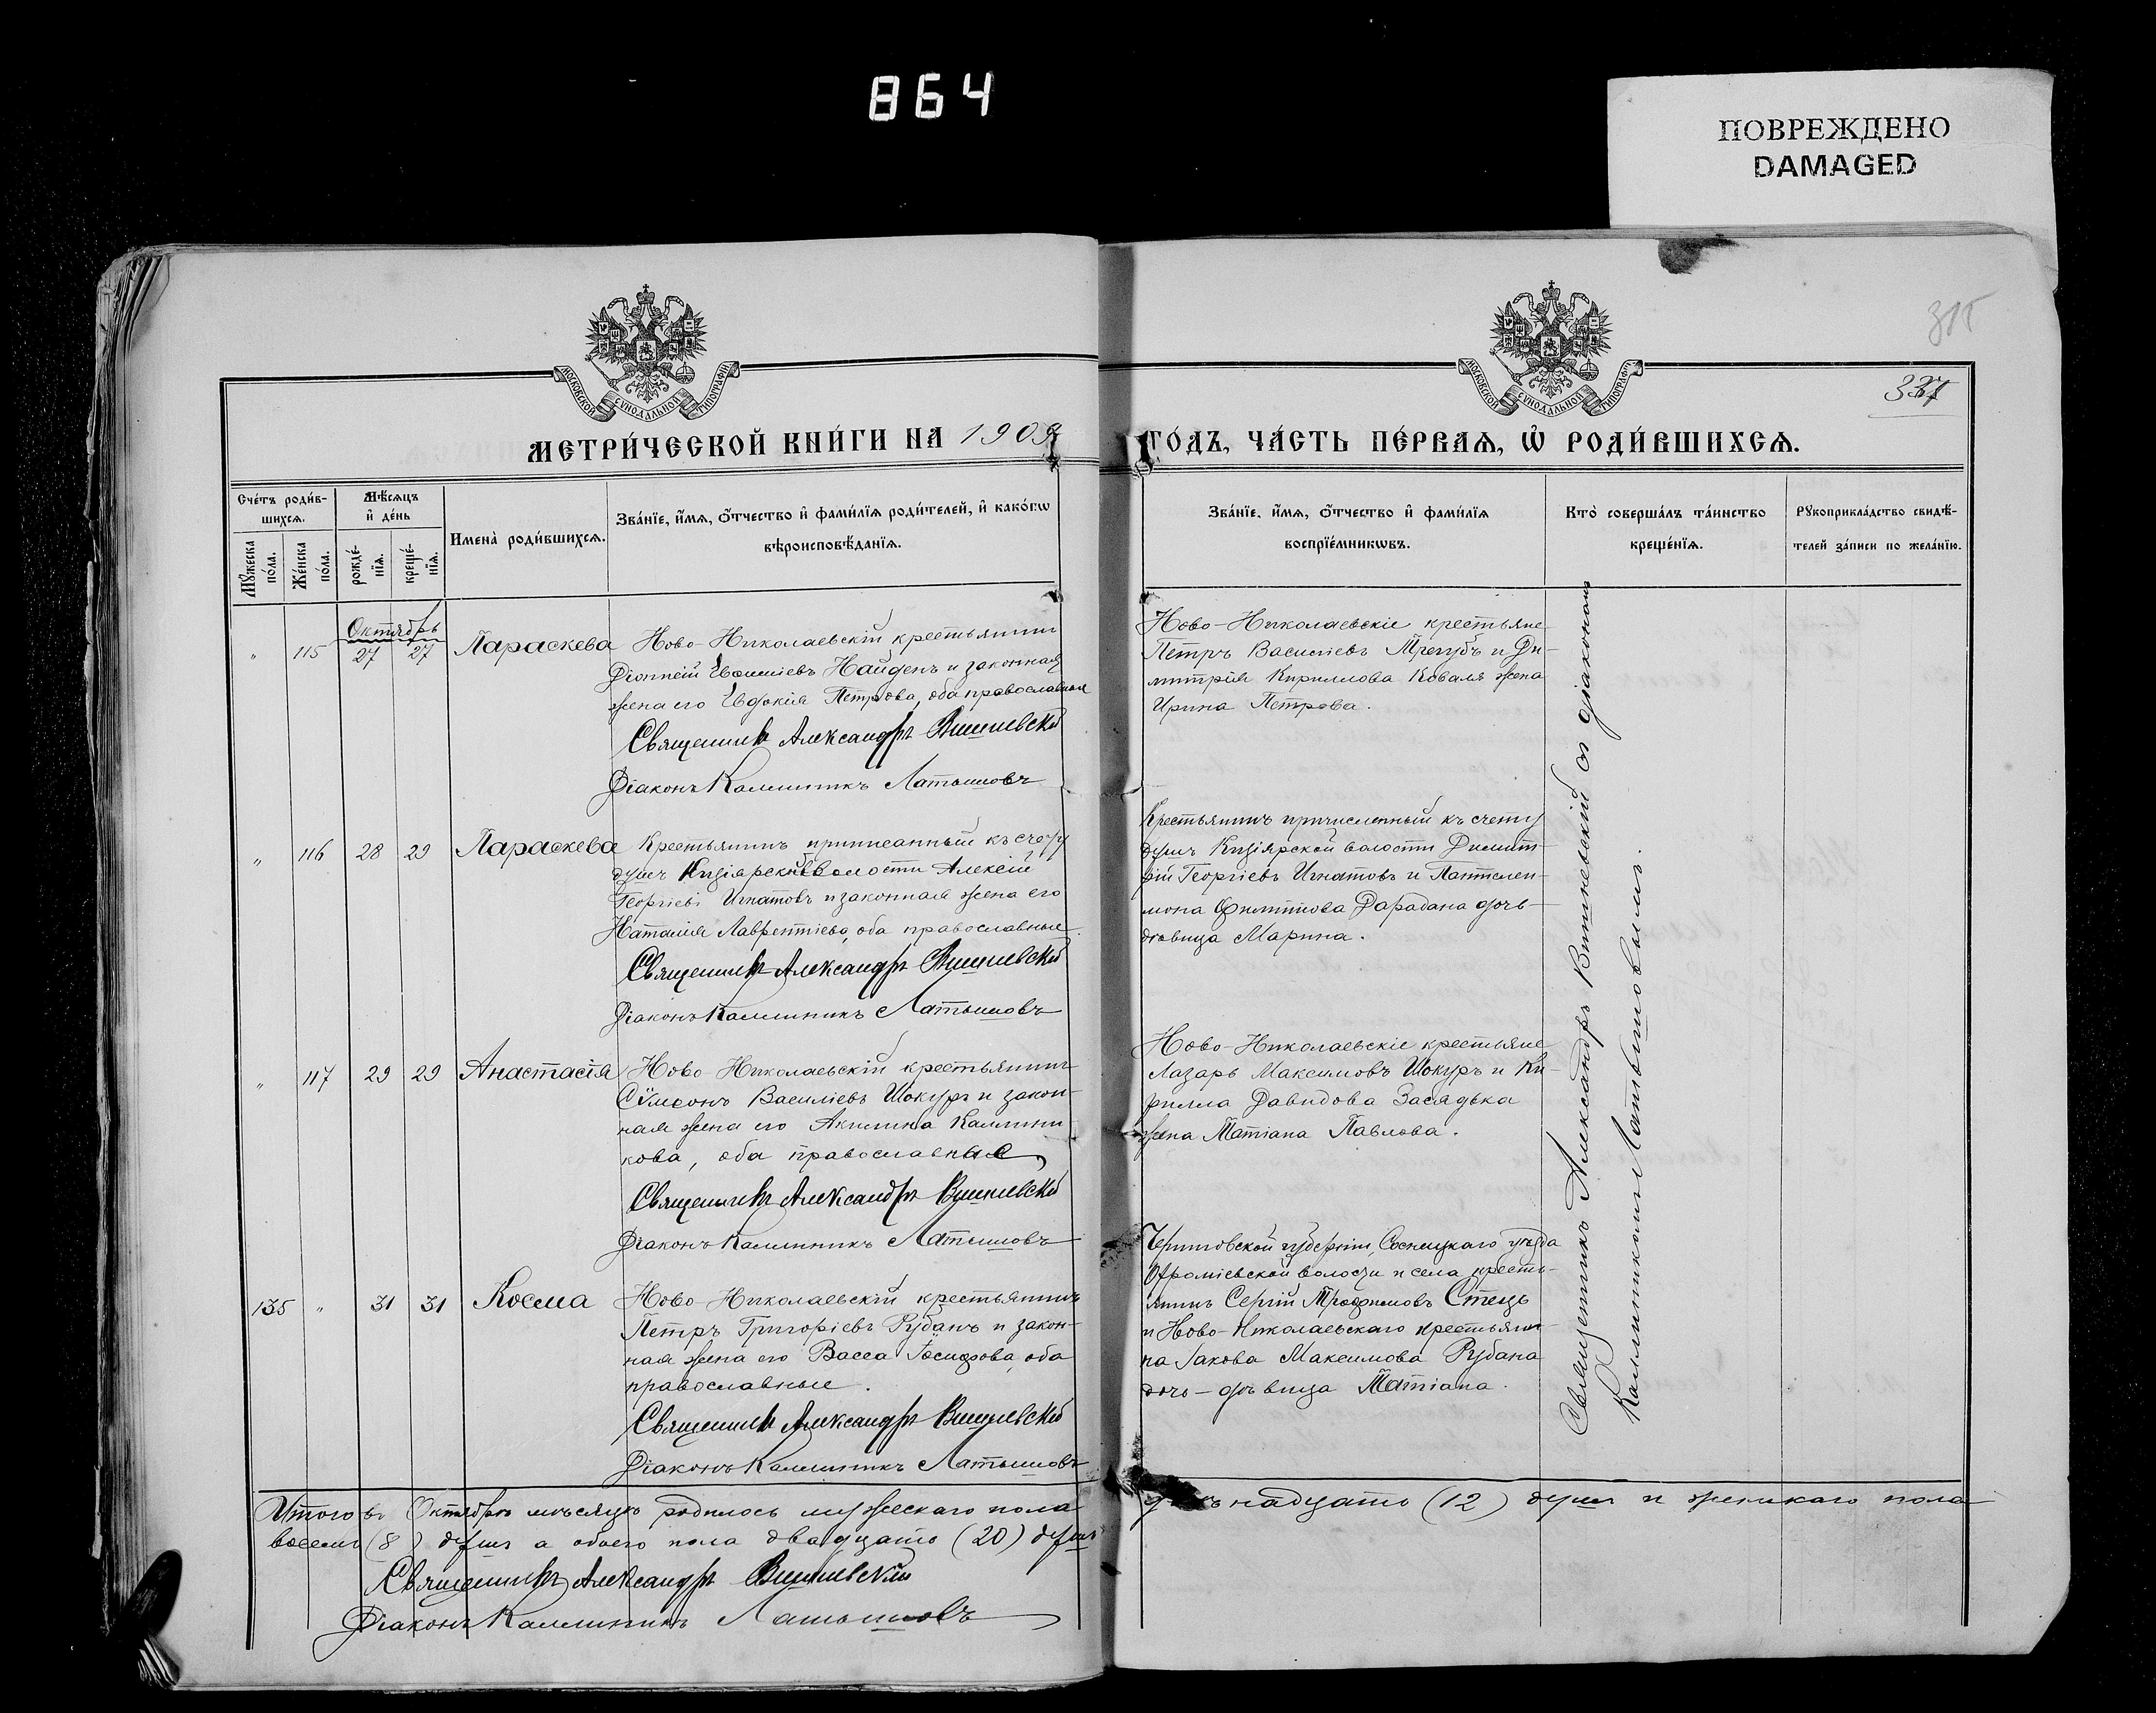 864
ПОВРЕЖДЕНО
DAMAGED
315
337
МОСКОВСКОЙ СѴНОДАЛЬНОЙ ТИПОГРАФІИ
МОСКОВСКОЙ СѴНОДАЛЬНОЙ ТИПОГРАФІИ
МЕТРИ́ЧЕСКОЙ КНИ́ГИ НА 1909 ГО́ДЪ, ЧА́СТЬ ПЕ́РВАЯ, Ѽ РОДИ́ВШИХСЯ.
Счéтъ роди́в-
шихся.
Мꙋ́жеска по́ла.
Же́нска по́ла.
Мѣ́сяцъ и де́нь
рожде́-нїя.
креще́-нїя.
Имена̀ роди́вшихся.
Зва́нїе, и́мя, о́тчество и фами́лїя роди́телей, и како́гѡ
вѣроисповѣ́данїя.
Зва́нїе, и́мя, о́тчество и фами́лїя
воспрїе́мникѡвъ.
Кто̀ соверша́лъ та́инство
креще́нїя.
Рꙋкоприкла́дство свидѣ́-
телей за́писи по жела́нїю.
Октябрь
" 115 27 27 Параскева
Ново-Николаевскій крестьянинъ
Діонисій Евѳиміевъ Найденъ и законная
жена его Евдокія Петрова, оба православные
Священникъ Александръ Вишневскій
Діаконъ Каллиникъ Латышовъ
Ново-Николаевскіе крестьяне
Петръ Василіевъ Трегубъ и Ди-
митрія Кириллова Коваля жена
Ирина Петрова.
" 116 28 29 Параскева
Крестьянинъ приписанный къ счету
душъ Кизіярской волости Алексій
Георгіевъ Игнатовъ и законная жена его
Наталія Лаврентіева, оба православные.
Священникъ Александръ Вишневскій
Діаконъ Каллиникъ Латышовъ
Крестьянинъ причисленный къ счету
душъ Кизіярской волости Димит-
рій Георгіевъ Игнатовъ и Пантелей-
мона Филиппова Дарадана дочь-
дѣвица Марина.
" 117 29 29 Анастасія
Ново-Николаевскій крестьянинъ
Сѵмеонъ Василіевъ Шокуръ и закон-
ная жена его Акилина Каллини-
кова, оба православные
Священникъ Александръ Вишневскій
Діаконъ Каллиникъ Латышовъ
Ново-Николаевскіе крестьяне
Лазарь Максимовъ Шокуръ и Ки-
рилла Давидова Засядька
жена Татіана Павлова.
135 " 31 31 Косма
Ново-Николаевскій крестьянинъ
Петръ Григоріевъ Рубанъ и закон-
ная жена его Васса Іосифова, оба
православные.
Священникъ Александръ Вишневскій
Діаконъ Каллиникъ Латышовъ
Черниговской губерніи, Сосницкаго уѣзда
волости и села кресть-
янинъ Сергій Трофимовъ Стець
и Ново-Николаевскаго крестьяни-
на Іакова Максимова Рубана
дочь-дѣвица Татіана.
Священникъ Александръ Вишневскій съ діакономъ
Каллиникомъ Латышовымъ.
Итого въ Октябрѣ мѣсяцѣ родилось мужескаго пола двѣнадцать (12) душъ и женскаго пола
восемь (8) душъ а обоего пола двадцать (20) душъ
Священникъ Александръ Вишневскій
Діаконъ Каллиникъ Латышовъ